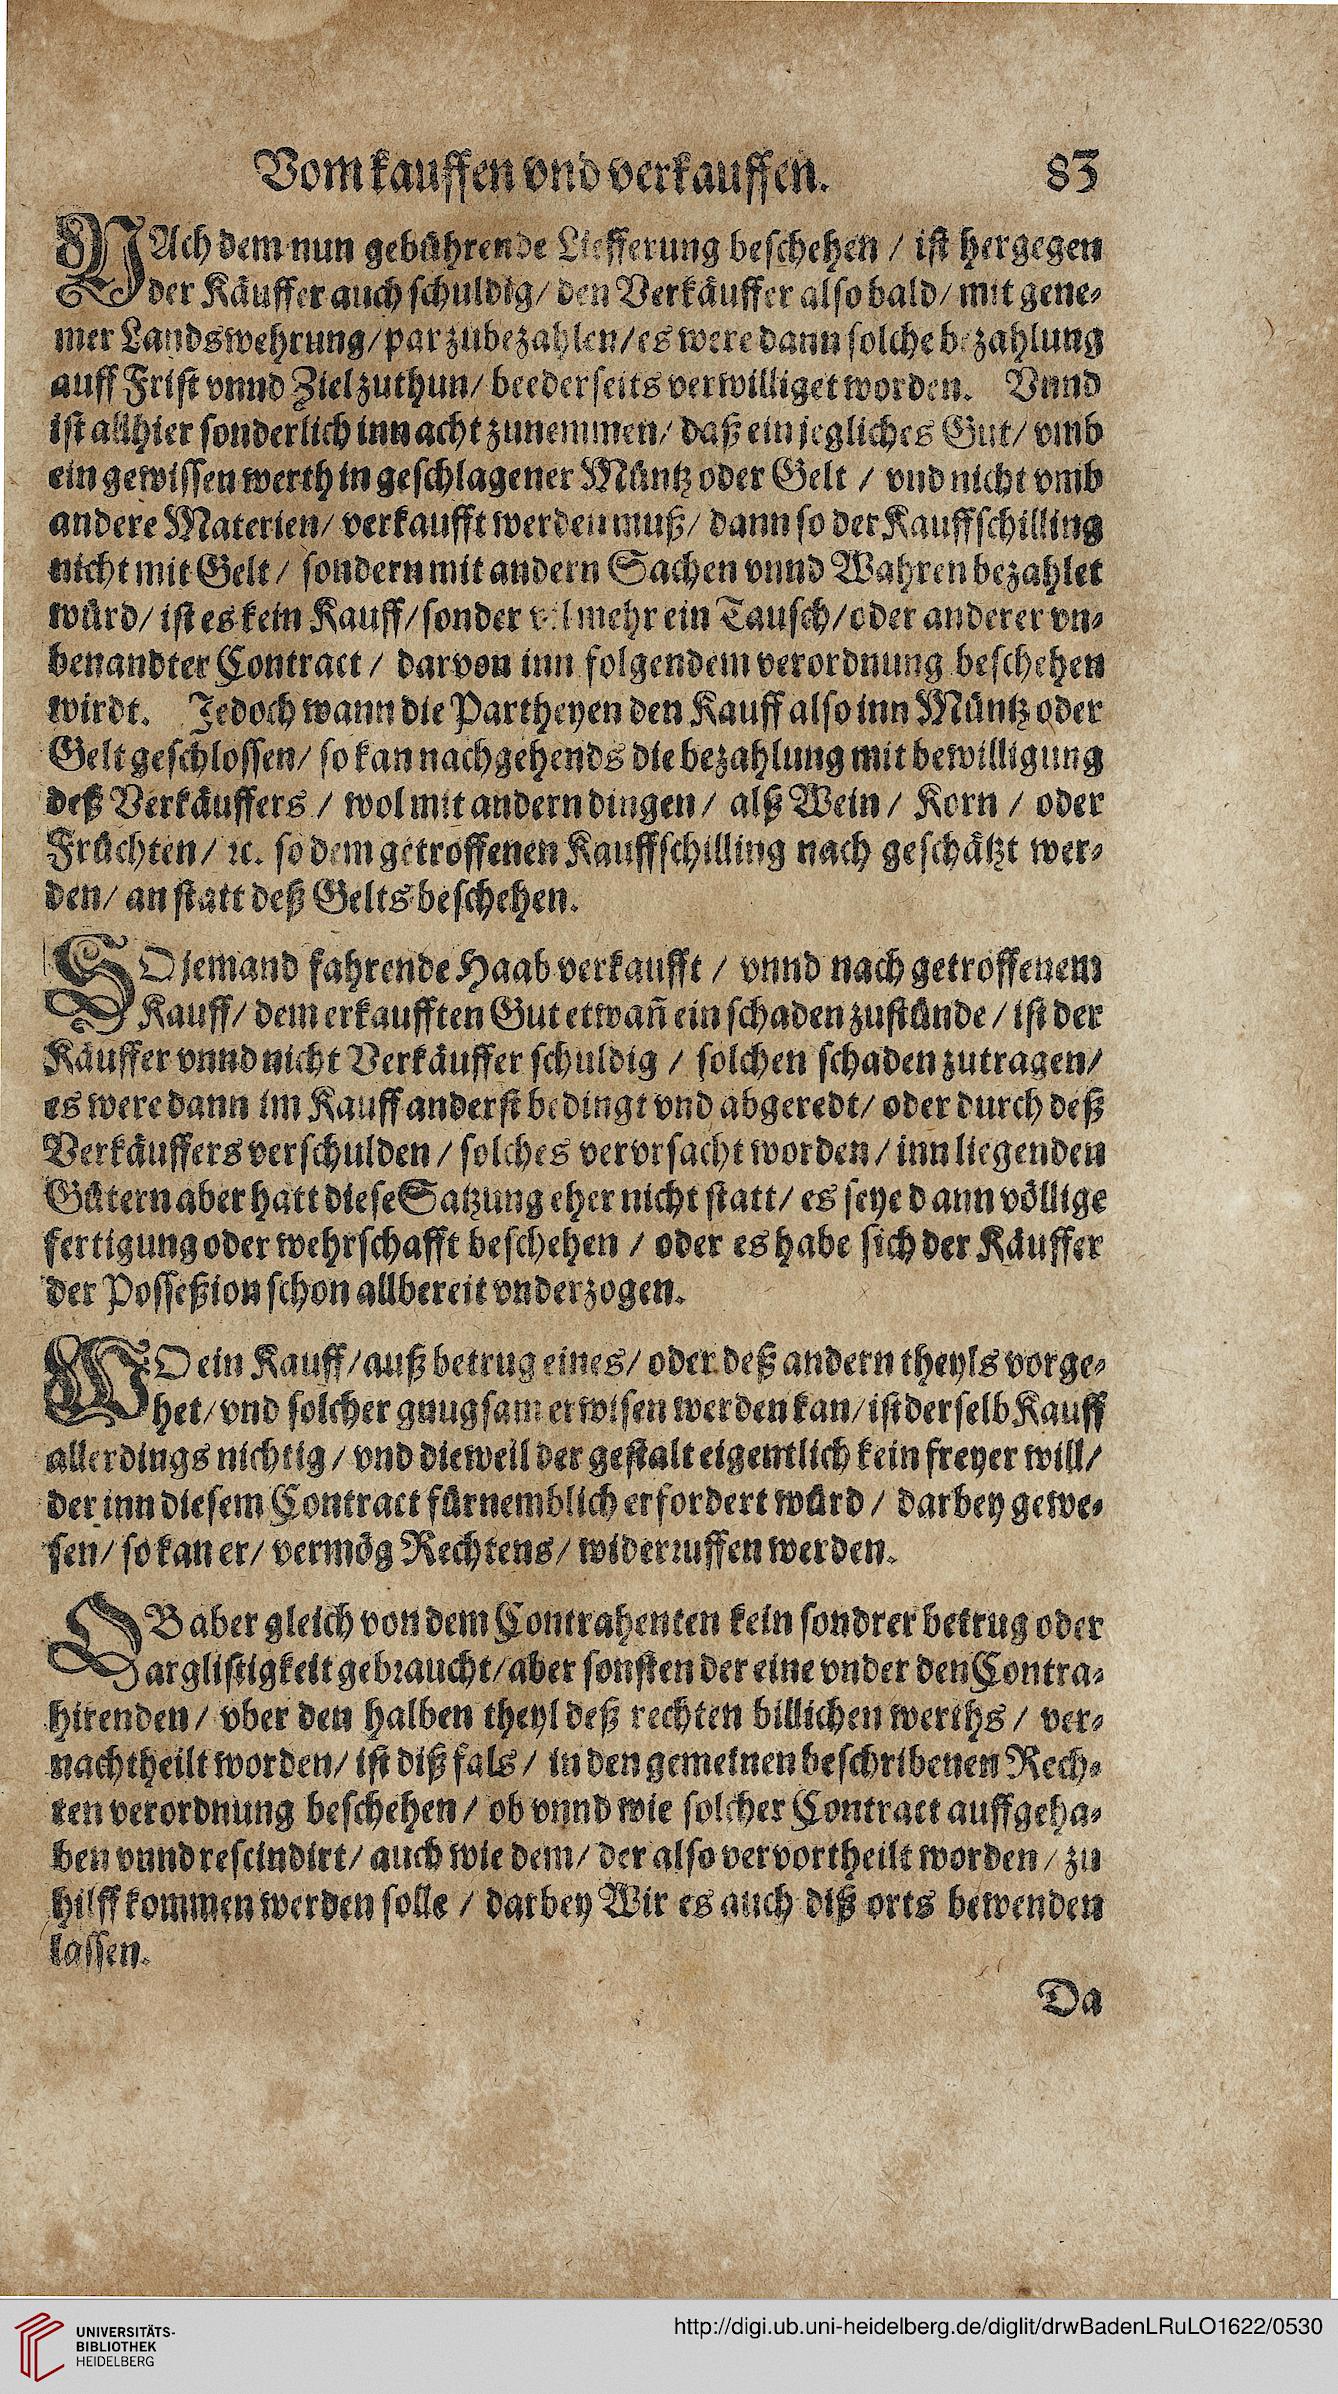 Vom kauffen vnd verkauffen. 83
NAch dem nun gebührende Liefferung beschehen / ist hergegen
der Käuffer auch schuldig / den Verkäuffer also bald / mit gene⸗
mer Landswehrung / par zubezahlen / es were dann solche bezahlung
auff Frist vnnd Ziel zuthun / beederseits verwilliget worden. Vnnd
ist allhier sonderlich inn acht zunemmen / daß ein jegliches Gut / vmb
ein gewissen werth in geschlagener Müntz oder Gelt / vnd nicht vmb
andere Materien / verkaufft werden muß / dann so der Kauffschilling
nicht mit Gelt / sondern mit andern Sachen vnnd Wahren bezahlet
würd / ist es kein Kauff / sonder vilmehr ein Tausch / oder anderer vn⸗
benandter Contract / darvon inn folgendem verordnung beschehen
wirdt. Jedoch wann die Partheyen den Kauff also inn Müntz oder
Gelt geschlossen / so kan nachgehends die bezahlung mit bewilligung
deß Verkäuffers / wol mit andern dingen / alß Wein / Korn / oder
Früchten / ꝛc. so dem getroffenen Kauffschilling nach geschätzt wer⸗
den / an statt deß Gelts beschehen.
SO jemand fahrende Haab verkaufft / vnnd nach getroffenem
Kauff / dem erkaufften Gut etwañ ein schaden zustünde / ist der
Käuffer vnnd nicht Verkäuffer schuldig / solchen schaden zutragen /
es were dann im Kauff anderst bedingt vnd abgeredt / oder durch deß
Verkäuffers verschulden / solches vervrsacht worden / inn liegenden
Gütern aber hatt diese Satzung eher nicht statt / es seye dann völlige
fertigung oder wehrschafft beschehen / oder es habe sich der Käuffer
der Posseßion schon allbereit vnderzogen.
WO ein Kauff / auß betrug eines / oder deß andern theyls vorge⸗
het / vnd solcher gnugsam erwisen werden kan / ist derselb Kauff
allerdings nichtig / vnd dieweil der gestalt eigentlich kein freyer will /
der inn diesem Contract fürnemblich erfordert würd / darbey gewe⸗
sen / so kan er / vermög Rechtens / widerruffen werden.
OB aber gleich von dem Contrahenten kein sondrer betrug oder
arglistigkeit gebraucht / aber sonsten der eine vnder den Contra⸗
hirenden / vber den halben theyl deß rechten billichen werths / ver⸗
nachtheilt worden / ist diß fals / in den gemeinen beschribenen Rech⸗
ten verordnung beschehen / ob vnnd wie solcher Contract auffgeha⸗
ben vnnd rescindirt / auch wie dem / der also vervortheilt worden / zu
hilff kommen werden solle / darbey Wir es auch diß orts bewenden
lassen.
Da
UNIVERSITÄTS-
BIBLIOTHEK
HEIDELBERG
http://digi.ub.uni-heidelberg.de/diglit/drwBadenLRuLO1622/0530